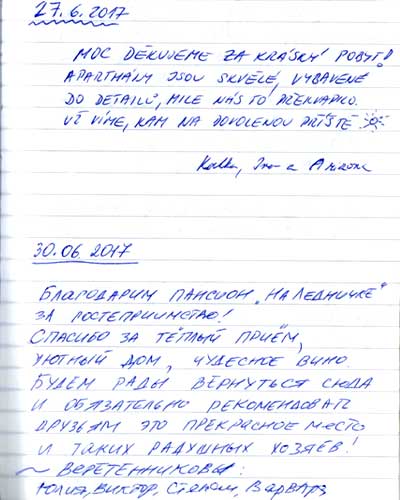 27.6.2017
MOC DĚKUJEME ZA KRÁSNÝ POBYT!
APARTMÁNY JSOU SKVĚLÉ, VYBAVENÉ
DO DETAILŮ, MILE NÁS TO PŘEKVAPILO.
UŽ VÍME, KAM NA DOVOLENOU PŘÍŠTĚ
a
30.06.2017
БЛАГОДАРИМ ПАНСИОН "НА ЛЕДНИЧКЕ"
ЗА ГОСТЕПРИИМСТВО!
СПАСИБО ЗА ТЁПЛЫЙ ПРИЁМ,
УЮТНЫЙ ДОМ, ЧУДЕСНОЕ ВИНО.
БУДЕМ РАДЫ ВЕРНУТЬСЯ СЮДА
И ОБЯЗАТЕЛЬНО РЕКОМЕНДОВАТЬ
ДРУЗЬЯМ ЭТО ПРЕКРАСНОЕ МЕСТО
И ТАКИХ РАДУШНЫХ ХОЗЯЕВ!
~ ВЕРЕТЕННИКОВЫ:
Юлия, Виктор, Степан, Варвара